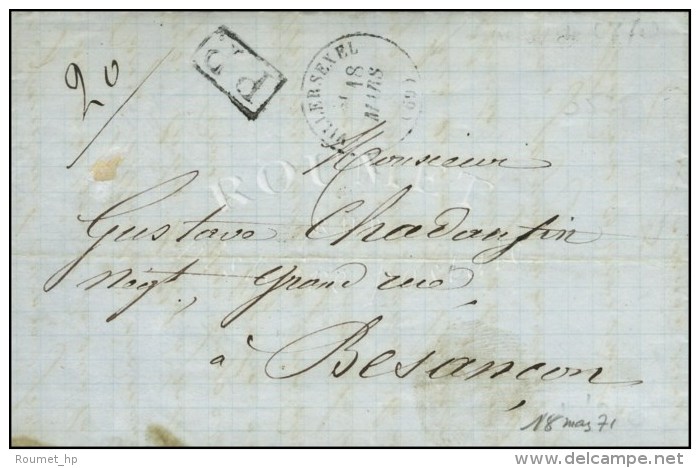 20/
P.P.
VILLERSEXEL (69)
18
MARS
Monsieur
ROUMET
Gustave Chadanfin
negt, grand rue
à Besançon
18 mars 71
Roumet_hp